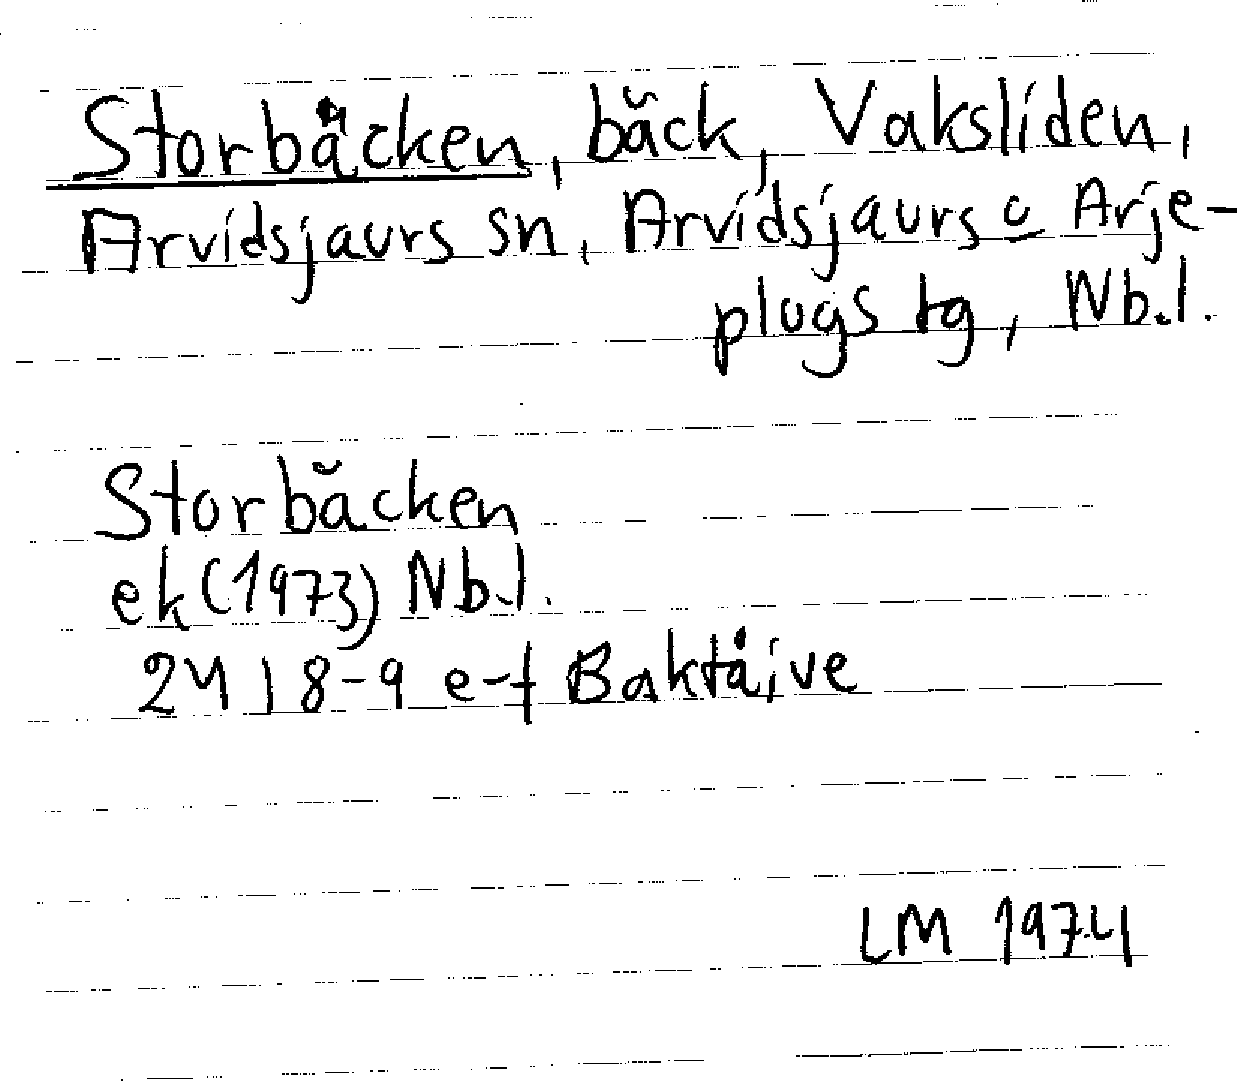 Storbäcken, bäck, Waksliden,
Arvidsjaurs sn, Arvidsjaurs o Arje-
plugs tg, Nb.l.
Storbäcken
ek (1973) Nb.l.
24 J 8-9 e-f Baktåive
LM 1974